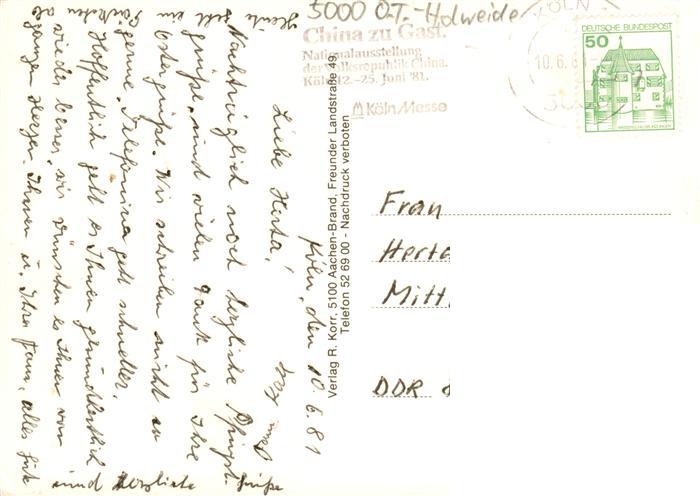 5000 O.T.-Holweide
KÖLN
China zu Gast.
Nationalausstellung
der Volksrepublik China.
Köln 12.-25. Juni '81.
KölnMesse
10.6.8
DEUTSCHE BUNDESPOST
50
Verlag R. Korr, 5100 Aachen-Brand, Freunder Landstraße 49,
Telefon 52 69 00 - Nachdruck verboten
Frau
Herta
Mitt
DDR
Köln, den 10.6.81
Liebe Herta!
Nachträglich noch herzliche Pfingst-
grüße und vielen Dank für Ihre
Ostergrüße. Wir schreiben nicht so
gerne, Telefonieren geht schneller.
Hoffentlich geht es Ihnen gesundheitlich
wieder besser, wir wünschen es Ihnen von
ganzem Herzen. Ihnen u. Ihrer Fam. alles Gute
und herzliche Grüße
Heute geht ein